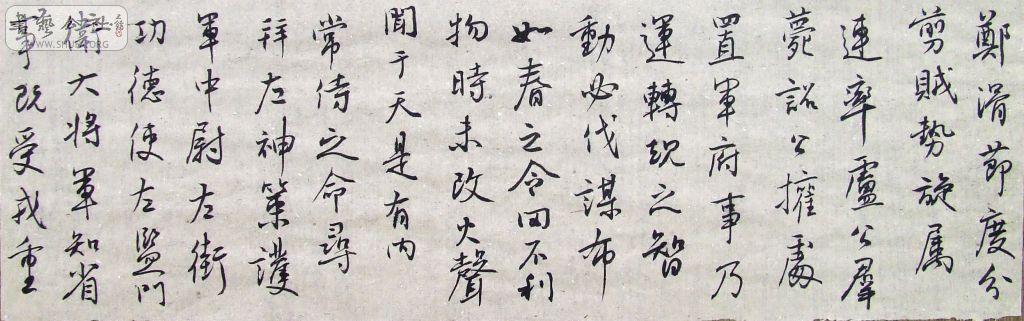 鄭滑節度分
剪賊勢旋属
連率盧公羣
薨詔公擁處
置軍府事乃
運轉規之智
動必伐謀布
如春之令罔不利
物時未改火聲
聞于天是有内
常侍之命尋
拜左神策護
軍中尉左街
功德使左監門
衛大将軍知省
事既受戎重
WWW.SHUFA.ORG